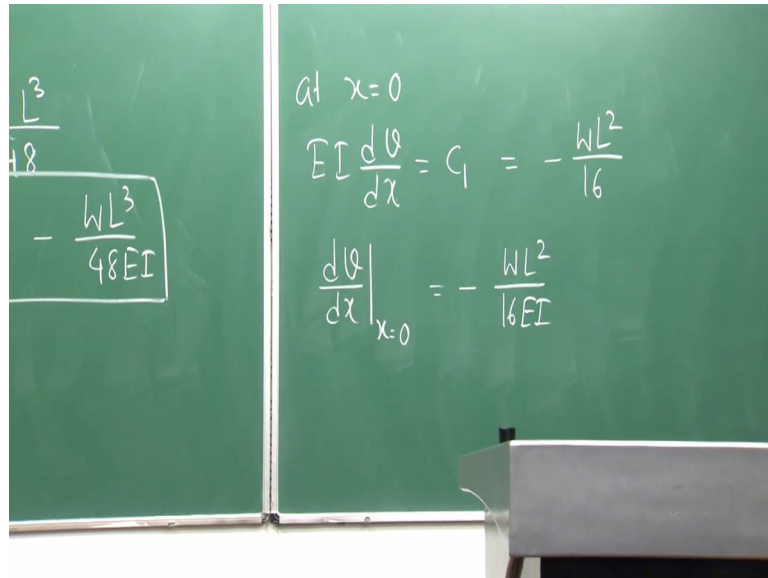 L³/48
- WL³/48EI
at x=0
EI dv/dx = C₁ = - WL²/16
dv/dx |x=0 = - WL²/16EI